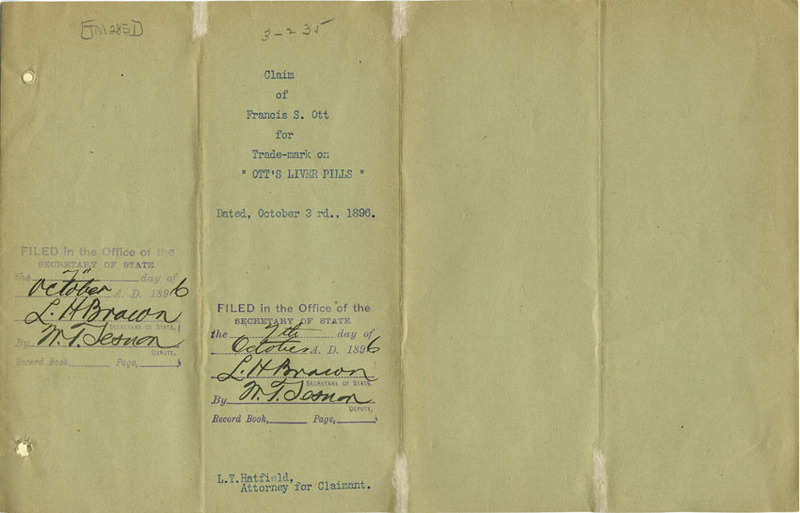 [TM 2851]
3-2 35
Claim
of
Francis S. Ott
for
Trade-mark on
" OTT'S LIVER PILLS "
Dated, October 3 rd., 1896.
FILED in the Office of the
SECRETARY OF STATE.
the 7" day of
October A. D. 1896
L. H. Brown
SECRETARY OF STATE.
By W. T. Sesnon
DEPUTY.
Record Book, Page,
FILED in the Office of the
SECRETARY OF STATE.
the 7th day of
October A. D. 1896
L. H. Brown
SECRETARY OF STATE.
By W. T. Sesnon
DEPUTY,
Record Book, Page,
L.T.Hatfield,
Attorney for Claimant.